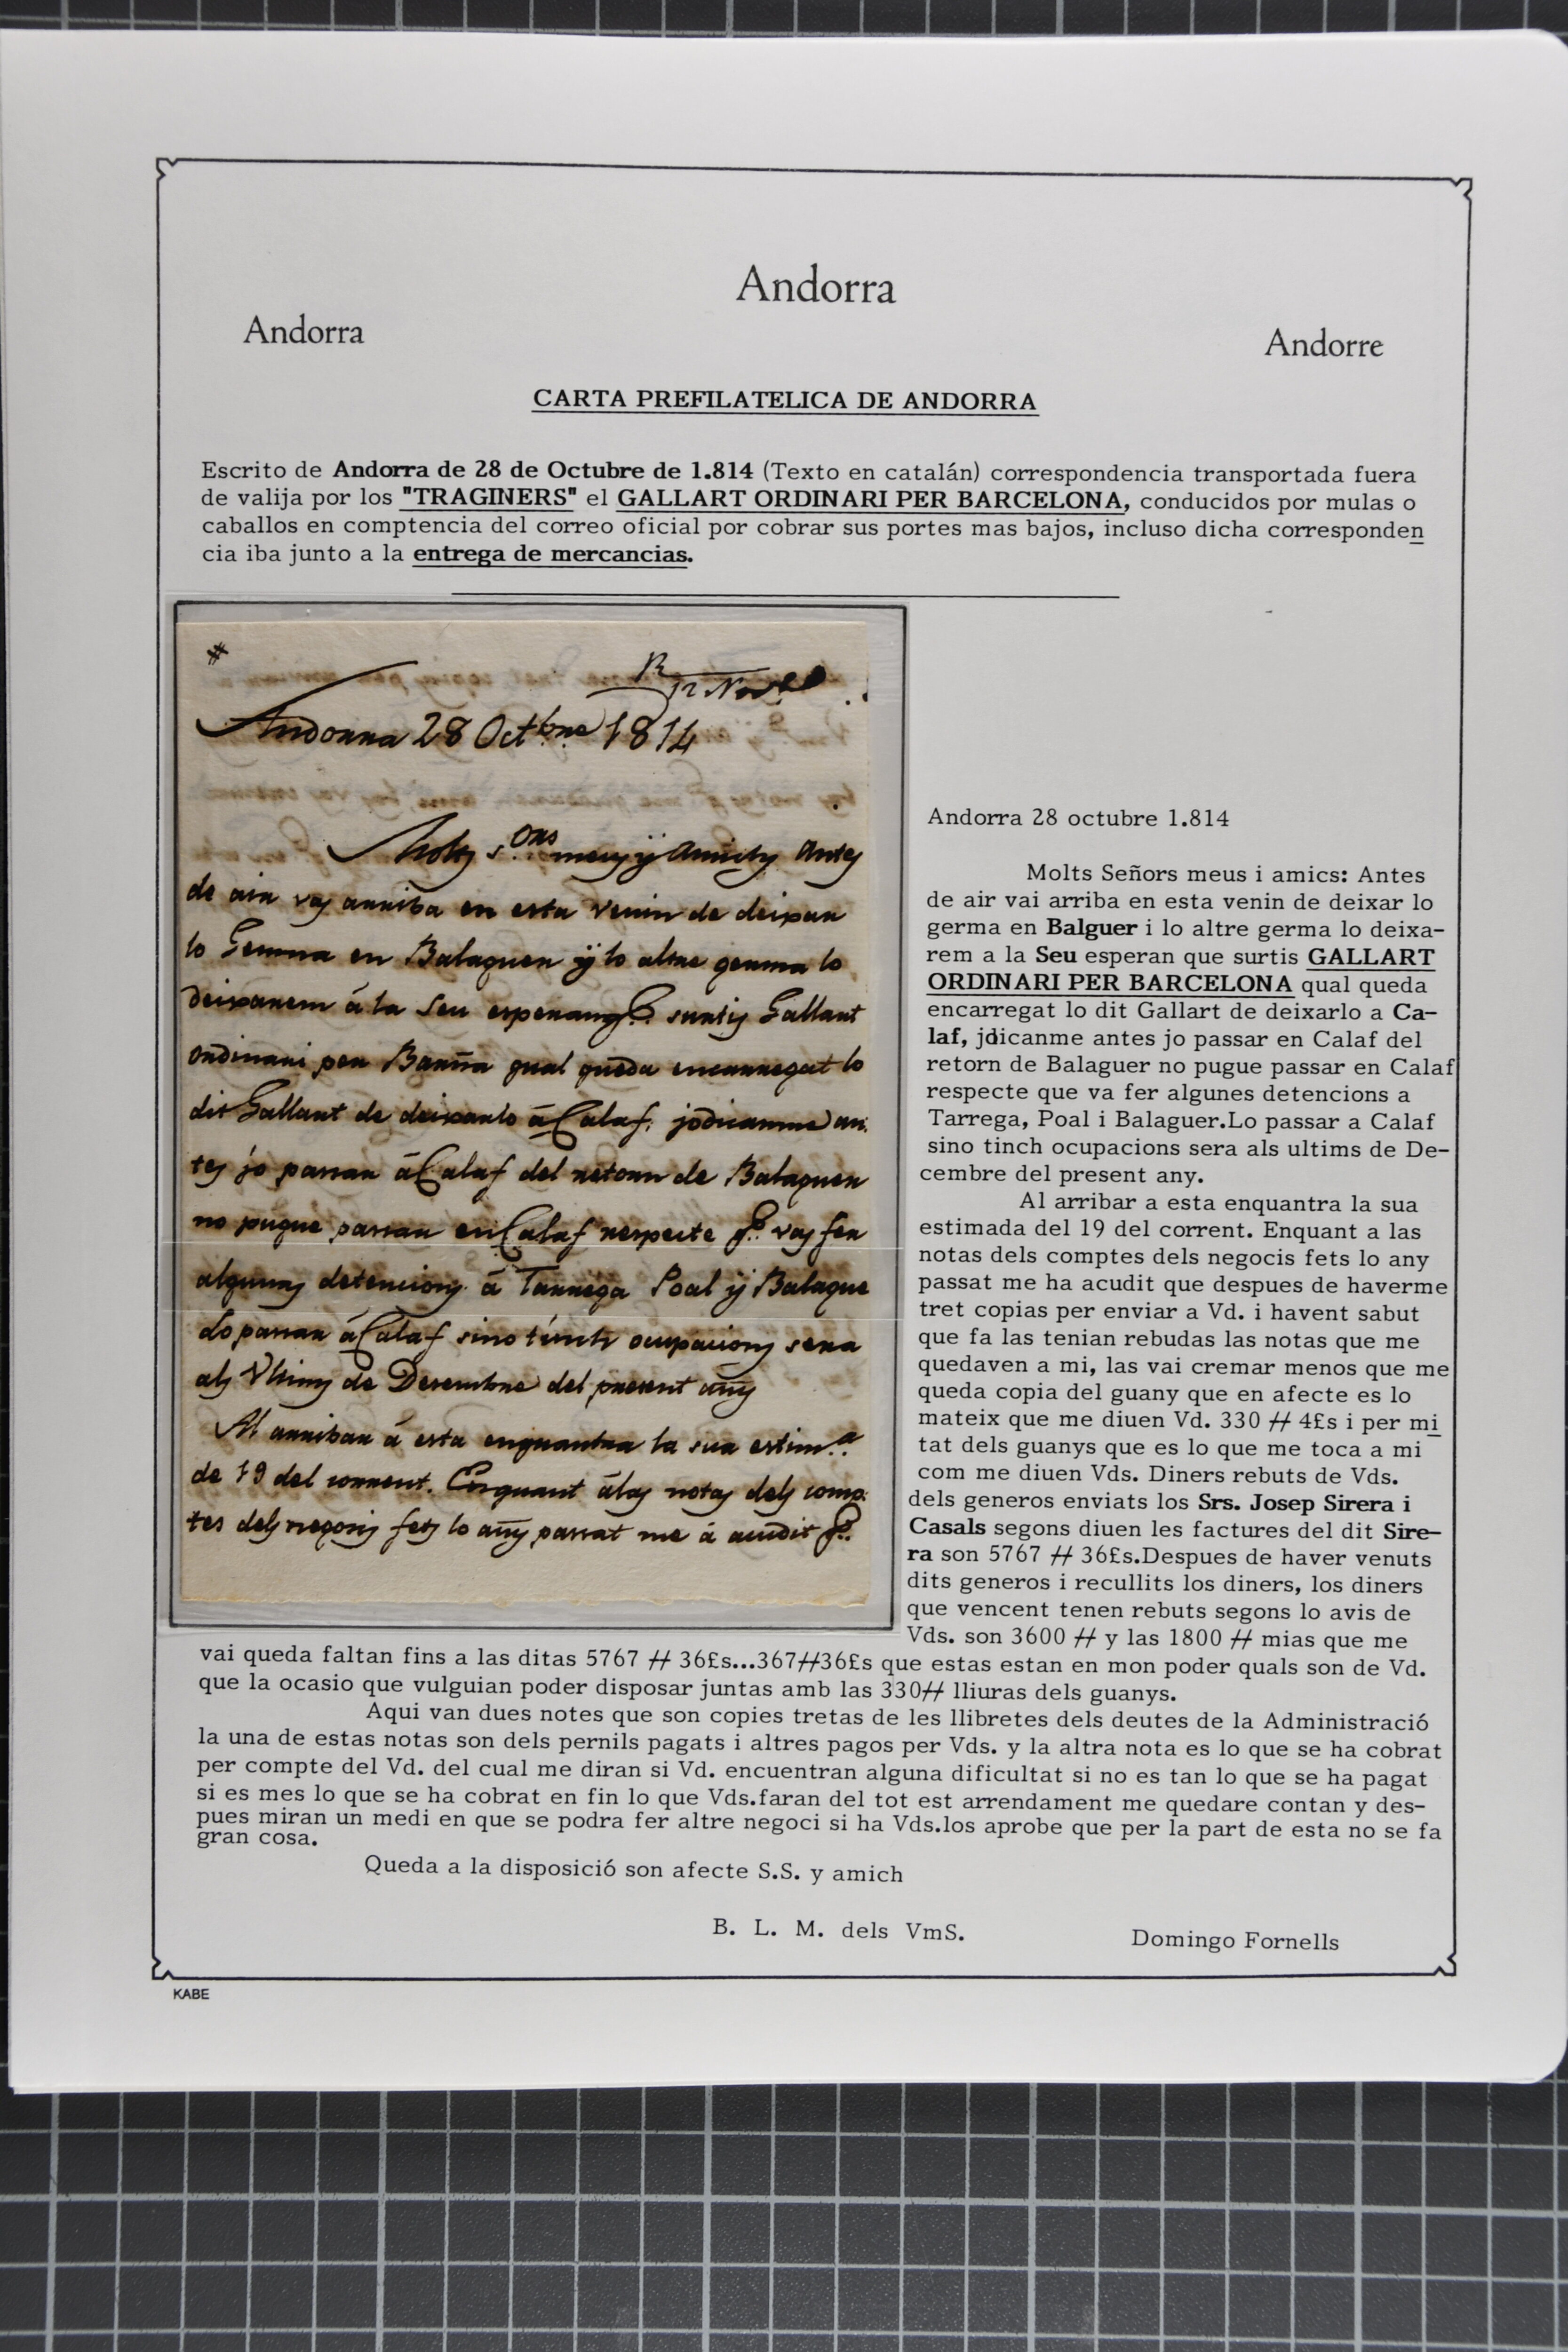 Andorra
Andorra
Andorre
CARTA PREFILATELICA DE ANDORRA
Escrito de Andorra de 28 de Octubre de 1.814 (Texto en catalán) correspondencia transportada fuera
de valija por los "TRAGINERS" el GALLART ORDINARI PER BARCELONA, conducidos por mulas o
caballos en comptencia del correo oficial por cobrar sus portes mas bajos, incluso dicha corresponden
cia iba junto a la entrega de mercancias.
#
R 12 Nov.e
Andorra 28 Oct.bre 1814
Molts s.ors meus ÿ Amichs Antes
de air vaj arriba en esta venin de deixar
lo Germa en Balaguer ÿ lo altre germa lo
deixarem á la Seu esperamq.e surtis Gallart
Ordinari per Barna qual queda encarregat lo
dit Gallart de deixarlo á Calaf, jodicanme an:
tes jo passar á Calaf del retorn de Balaguer
no pugue passar en Calaf respecte q.e vaj fer
algunas detencions á Tarrega Poal ÿ Balague
Lo passar á Calaf sino tinch ocupacions sera
als Vltims de Desembre del present añy
Al arribar á esta enquantra la sua estim.a
de 19 del corrent. Enquant álas notas dels comp:
tes dels negosis fets lo añy passat me á acudit q.e
Andorra 28 octubre 1.814
Molts Señors meus i amics: Antes
de air vai arriba en esta venin de deixar lo
germa en Balguer i lo altre germa lo deixa-
rem a la Seu esperan que surtis GALLART
ORDINARI PER BARCELONA qual queda
encarregat lo dit Gallart de deixarlo a Ca-
laf, jdicanme antes jo passar en Calaf del
retorn de Balaguer no pugue passar en Calaf
respecte que va fer algunes detencions a
Tarrega, Poal i Balaguer.Lo passar a Calaf
sino tinch ocupacions sera als ultims de De-
cembre del present any.
Al arribar a esta enquantra la sua
estimada del 19 del corrent. Enquant a las
notas dels comptes dels negocis fets lo any
passat me ha acudit que despues de haverme
tret copias per enviar a Vd. i havent sabut
que fa las tenian rebudas las notas que me
quedaven a mi, las vai cremar menos que me
queda copia del guany que en afecte es lo
mateix que me diuen Vd. 330 # 4£s i per mi
tat dels guanys que es lo que me toca a mi
com me diuen Vds. Diners rebuts de Vds.
dels generos enviats los Srs. Josep Sirera i
Casals segons diuen les factures del dit Sire-
ra son 5767 # 36£s.Despues de haver venuts
dits generos i recullits los diners, los diners
que vencent tenen rebuts segons lo avis de
Vds. son 3600 # y las 1800 # mias que me
vai queda faltan fins a las ditas 5767 # 36£s...367#36£s que estas estan en mon poder quals son de Vd.
que la ocasio que vulguian poder disposar juntas amb las 330# lliuras dels guanys.
Aqui van dues notes que son copies tretas de les llibretes dels deutes de la Administració
la una de estas notas son dels pernils pagats i altres pagos per Vds. y la altra nota es lo que se ha cobrat
per compte del Vd. del cual me diran si Vd. encuentran alguna dificultat si no es tan lo que se ha pagat
si es mes lo que se ha cobrat en fin lo que Vds.faran del tot est arrendament me quedare contan y des-
pues miran un medi en que se podra fer altre negoci si ha Vds.los aprobe que per la part de esta no se fa
gran cosa.
Queda a la disposició son afecte S.S. y amich
B. L. M. dels VmS.
Domingo Fornells
KABE